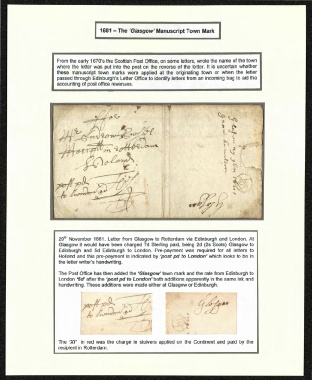 1681 – The 'Glasgow' Manuscript Town Mark
From the early 1670's the Scottish Post Office, on some letters, wrote the name of the town
where the letter was put into the post on the reverse of the letter. It is uncertain whether
these manuscript town marks were applied at the originating town or when the letter
passed through Edinburgh's Letter Office to identify letters from an incoming bag to aid the
accounting of post office revenues.
For
Mr Andrew Russell
in rotterdam
Holland
post pd
to london
Glasgow
29th November 1681. Letter from Glasgow to Rotterdam via Edinburgh and London. At
Glasgow it would have been charged 7d Sterling paid, being 2d (2s Scots) Glasgow to
Edinburgh and 5d Edinburgh to London. Pre-payment was required for all letters to
Holland and this pre-payment is indicated by 'post pd to London' which looks to be in
the letter writer's handwriting.
The Post Office has then added the 'Glasgow' town mark and the rate from Edinburgh to
London '5d' after the 'post pd to London' both additions apparently in the same ink and
handwriting. These additions were made either at Glasgow or Edinburgh.
post pd
to london 5d
Glasgow
in red was the charge in stuivers applied on the Continent and paid by the
recipient in Rotterdam.